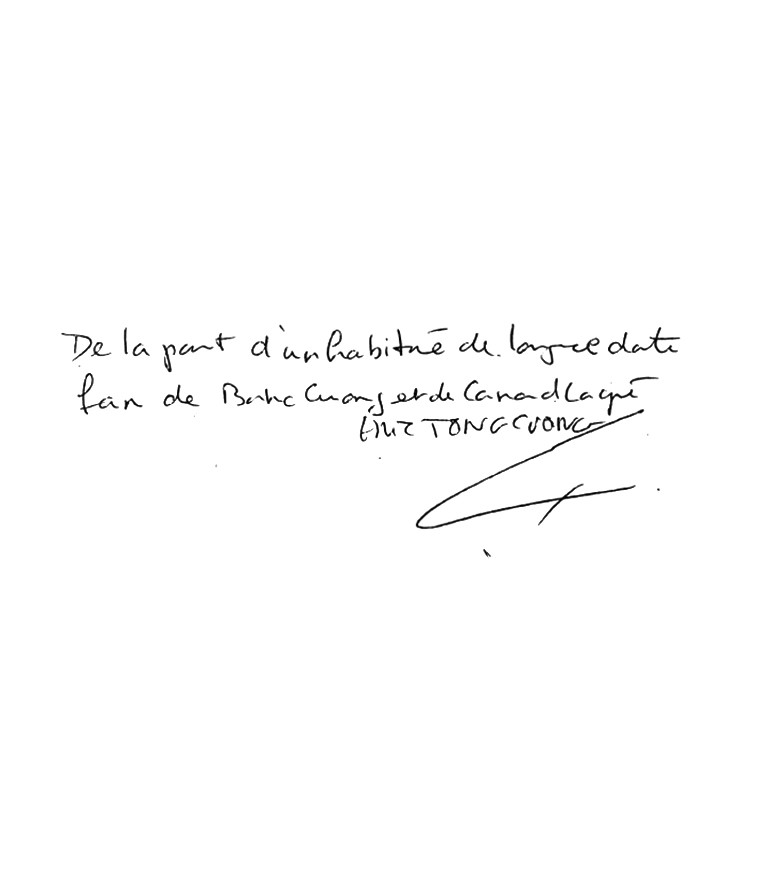 De la part d'un habitué de longue date
fan de Banh Cuong et de Canard Laqué
Éric TONG CUONG